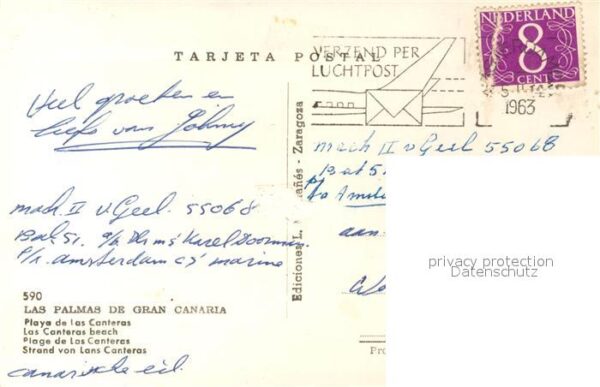 TARJETA POSTAL
NEDERLAND
8
CENT
VERZEND PER
LUCHTPOST
1963
Veel groeten en
liefs van Johny
Ediciones L. Zaragoza
mach II v Geel 55068
Bat 51
aan
mach. II v. Geel. 55068
Bat. 51. a/b Hr ms Karel Doorman
P/r. amsterdam CS marine
590
LAS PALMAS DE GRAN CANARIA
Playa de las Canteras
Las Canteras beach
Plage de Los Canteras
Strand von Lans Canteras
canarische eil.
privacy protection
Datenschutz